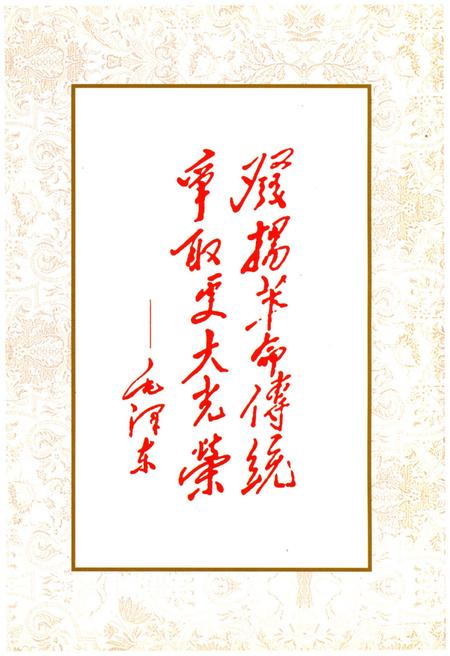 發揚革命傳統
爭取更大光榮
——毛澤东